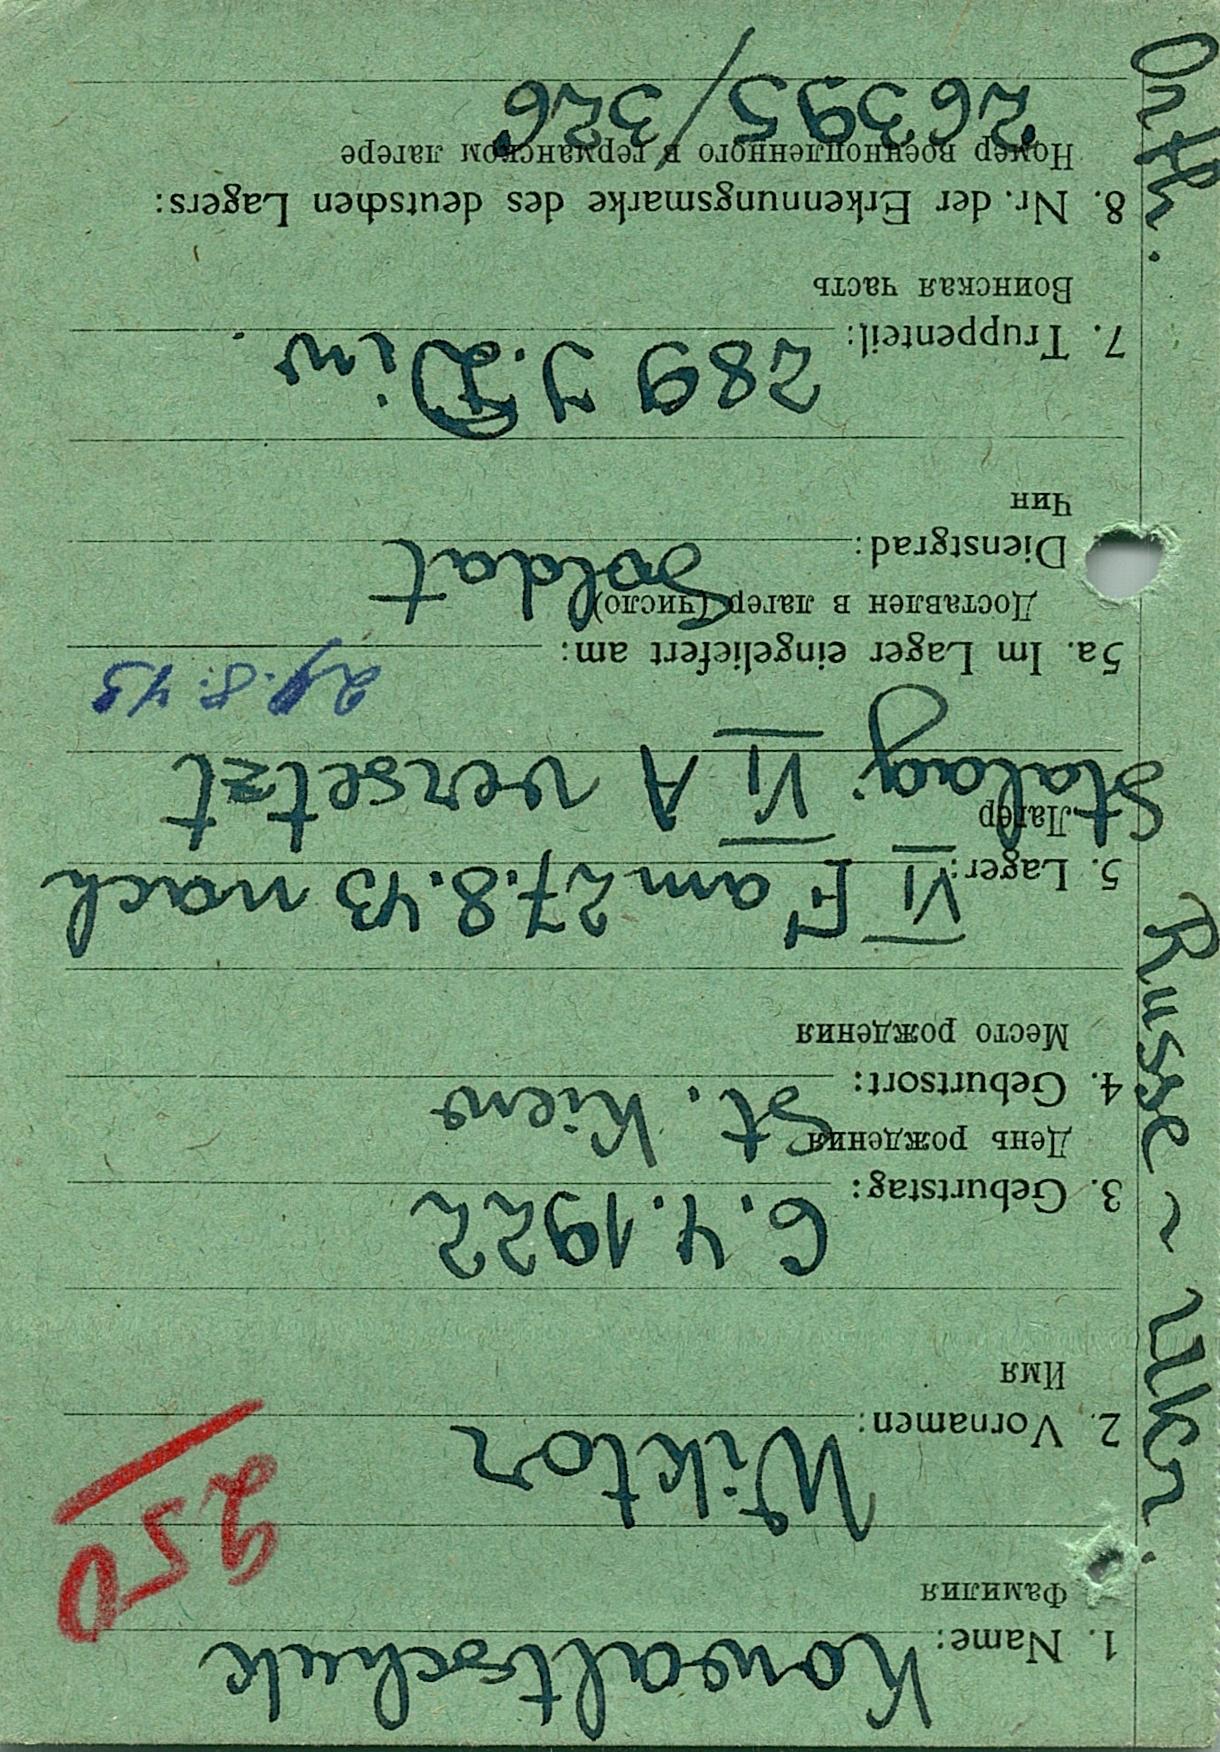 Kowaltschuk
1. Name:
Фамилия
250
Wiktor
2. Vornamen:
Имя
6.4.1922
3. Geburtstag:
День рождения
St. Kiew
4. Geburtsort:
Место рождения
VI F am 27.8.43 nach
5. Lager:
Лагер
Stalag VI A versetzt
29.8.43
5a. Im Lager eingeliefert am:
Доставлен в лагер (число)
Soldat
Dienstgrad:
Чин
289 J. Div.
7. Truppenteil:
Воинская часть
8. Nr. der Erkennungsmarke des deutschen Lagers:
Номер военнопленного в германском лагере
26395/326
Orth. Russe ~ Ukr.